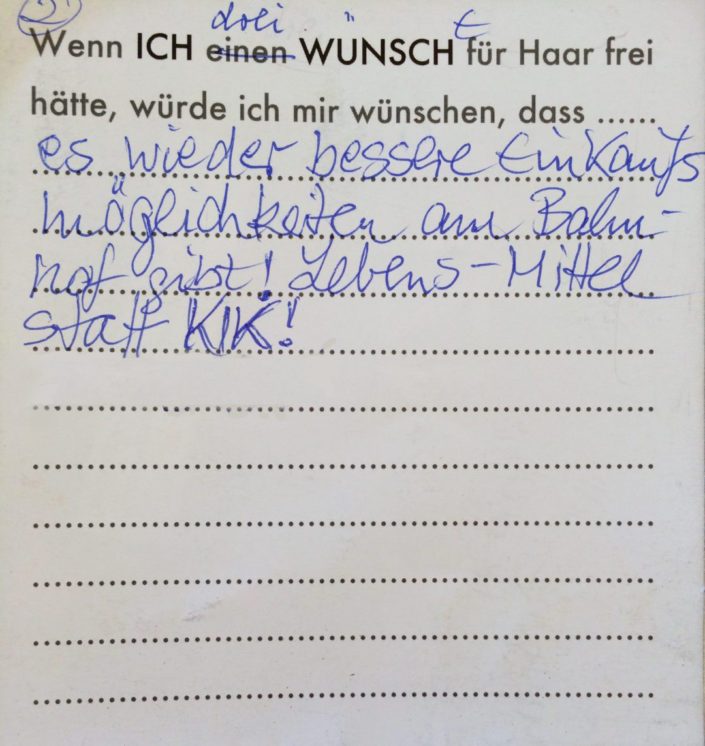 2.
drei
Wenn ICH einen WÜNSCHE für Haar frei
hätte, würde ich mir wünschen, dass ......
es wieder bessere Einkaufs
möglichkeiten am Bahn-
hof gibt! Lebens-Mittel
statt KIK!